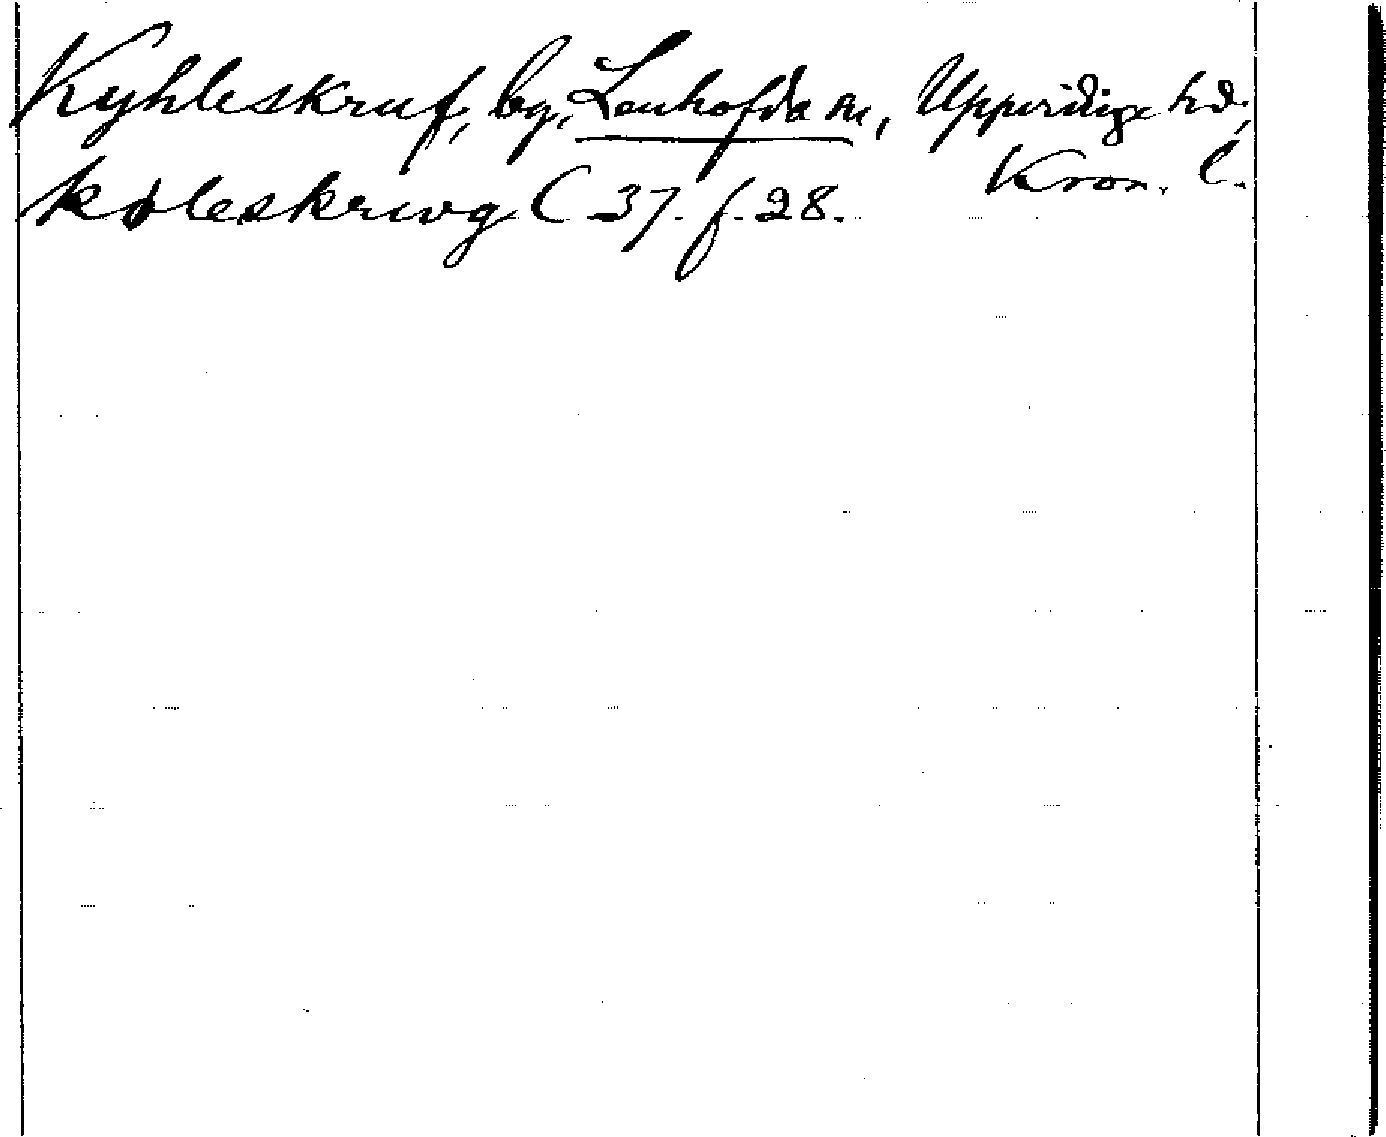 Kyhleskruf, by, Lenhofda sn, Uppvidinge hd,
Kron. l.
køleskrwg C 37. f. 28.